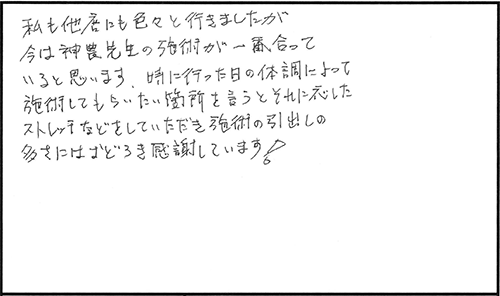 私も他店にも色々と行きましたが
今は神農先生の施術が一番合って
いると思います。時に行った日の体調によって
施術してもらいたい箇所を言うとそれに応じた
ストレッチなどをしていただき施術の引出しの
多さにはおどろき感謝しています!